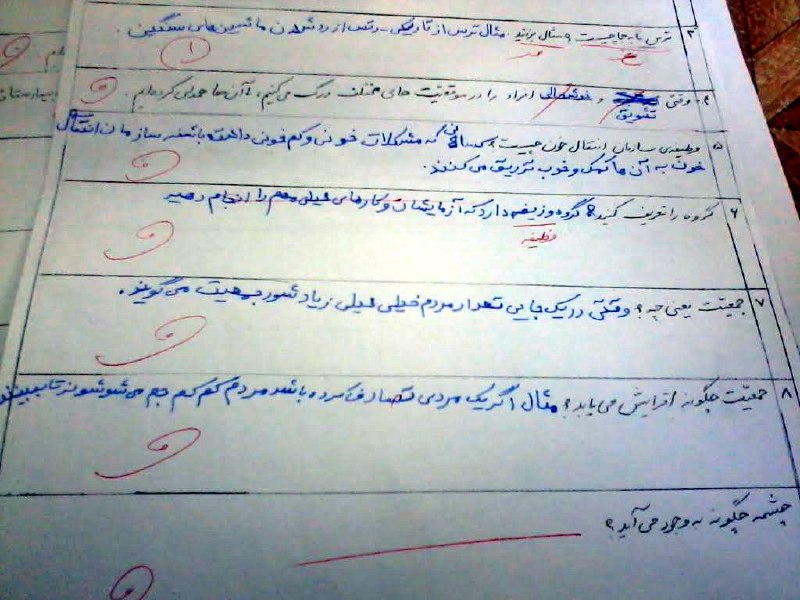 ۳ ترس نا به جا چیست ؟ مثال بزنید. مثال ترس از تاریکی - ترس از رد شدن ماشین های سنگین.
۴. وقتی تشویق و خوشحالی افراد را در موقعیت های مختلف درک می کنیم، با آن ها همدلی کرده ایم.
۵ وظیفه ی سازمان انتقال خون چیست؟ کسانی که مشکلات خونی و کم خونی داشته باشند سازمان انتقال
خون به آن ها کمک و خوب تزریق می کنند.
۶ گروه را تعریف کنید؟ گروه وزیفه دارد که آزمایشات و کارهای خیلی مهم را انجام دهد
وظیفه
۷ جمعیّت یعنی چه؟ وقتی در یک جایی تعداد مردم خیلی خیلی زیاد شود جمعیت می گویند.
۸ جمعیّت چگونه افزایش می یابد؟ مثال اگر یک مردی تصادف کرده باشد مردم کم کم جم می شوند تا ببینند
چشمه چگونه به وجود می آید؟